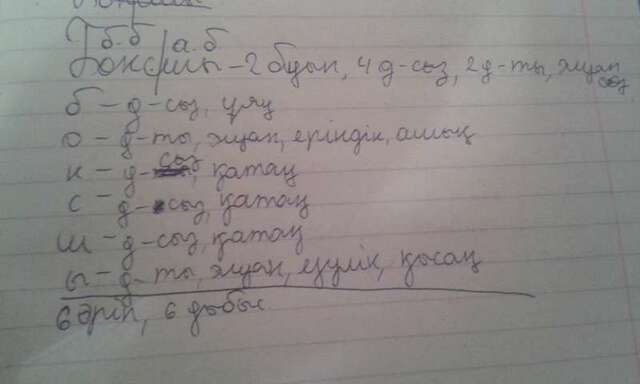 б.б а.б
Боксшы – 2 буын, 4 д-сыз, 2 д-ты, жуан сөз
б – д-сыз, ұяң
о – д-ты, жуан, еріндік, ашық
к – д-сыз, қатаң
с – д-сыз, қатаң
ш – д-сыз, қатаң
ы – д-ты, жуан, езулік, қысаң
6 әріп, 6 дыбыс